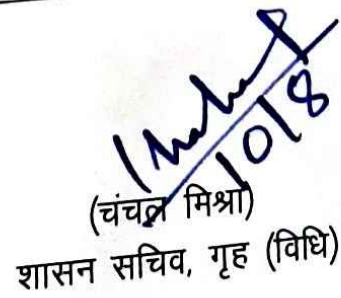 10/8
(चंचल मिश्रा)
शासन सचिव, गृह (विधि)